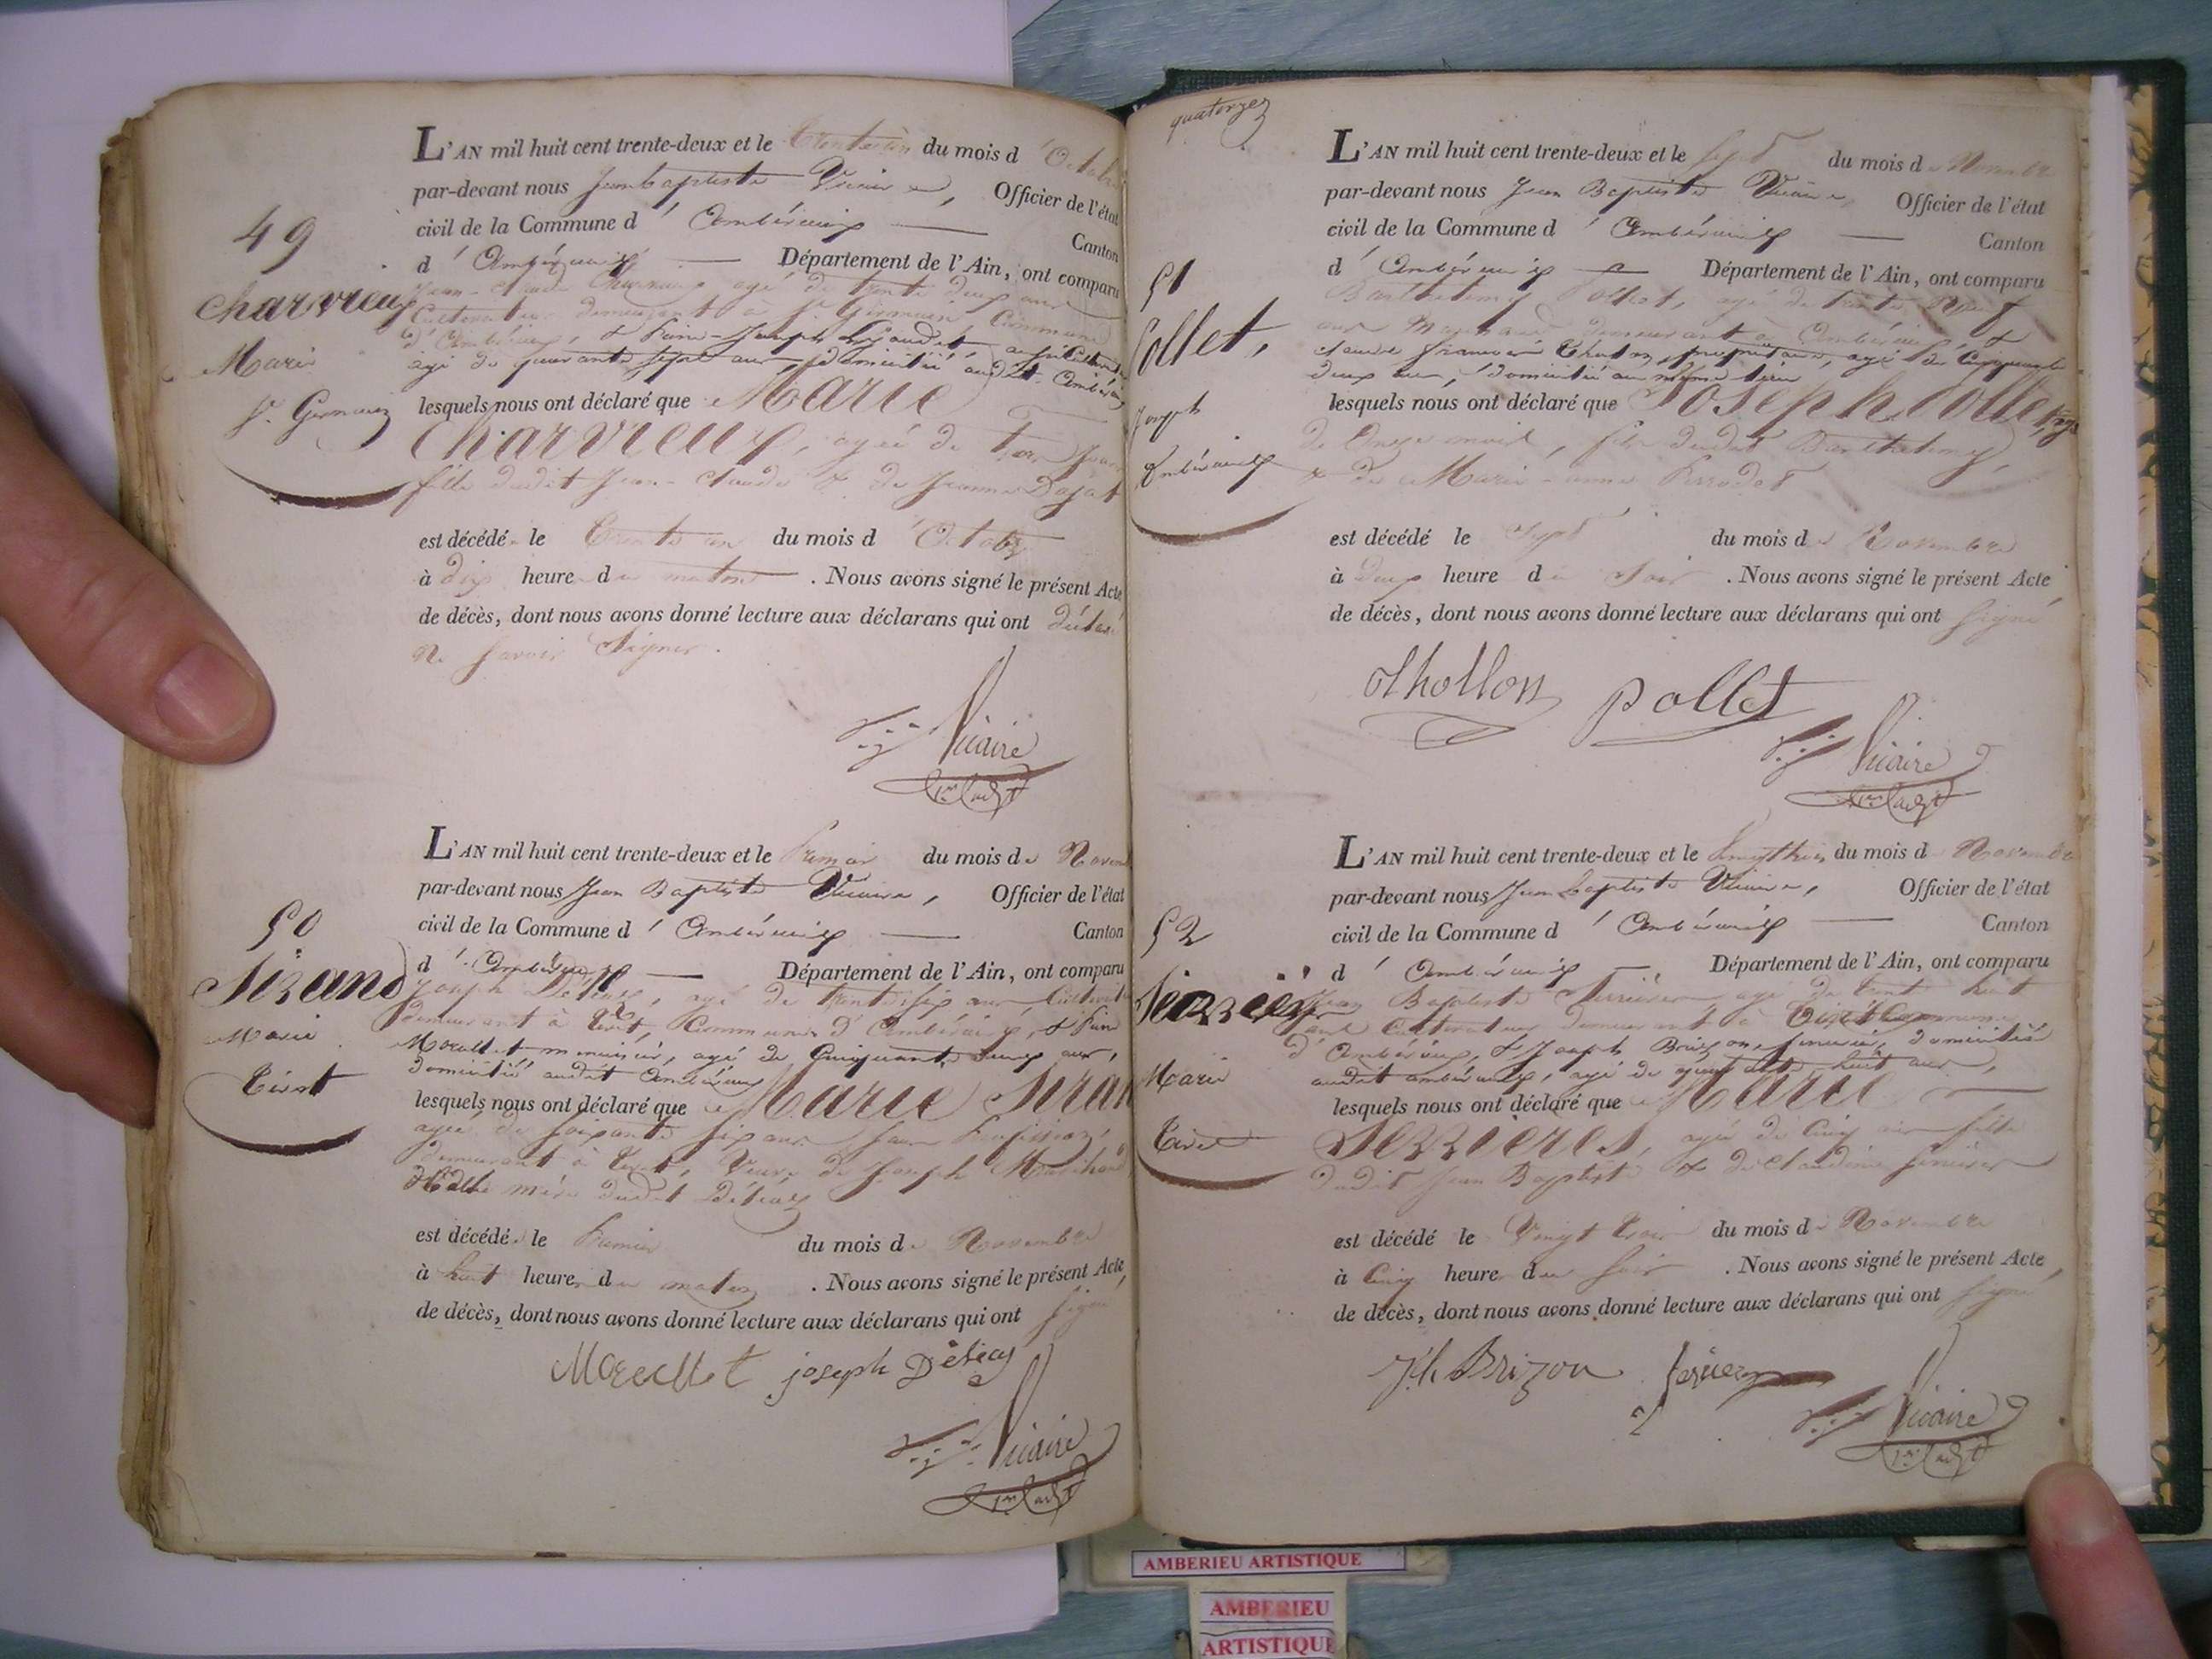 L'AN mil huit cent trente-deux et le trente un du mois d'Octobre
par-devant nous Jean baptiste Vicaire, Officier de l'état
civil de la Commune d'Ambérieux Canton
d'Ambérieux Département de l'Ain, ont comparu
49
Charvieux
Marie
St. Germain
Jean-Claude Charvieux agé de trente deux ans
Cultivateur demeurant à St. Germain, Commune
d'Ambérieux, & Joseph
agé de quarante sept ans, domicilié audit Ambérieux
lesquels nous ont déclaré que Marie
Charvieux, agée de
fille dudit Jean-Claude & de Jeanne Dajat
est décédé le trente un du mois d'Octobre
à dix heure du matin. Nous avons signé le présent Acte
de décès, dont nous avons donné lecture aux déclarans qui ont déclaré
ne savoir signer.
Vicaire
L'AN mil huit cent trente-deux et le Premier du mois de Novem
par-devant nous Jean Baptiste Vicaire, Officier de l'état
civil de la Commune d'Ambérieux Canton
d'Ambérieux Département de l'Ain, ont comparu
50
Sirand
Marie
Tiret
Joseph Déliaz, agé de trente six ans Cultivat
demeurant à Tiret, Commune d'Ambérieux, &
menuisier, agé de Cinquante deux ans,
domicilié audit Ambérieux
lesquels nous ont déclaré que Marie Siran
agée de soixante six ans, sans profession,
demeurant à Tiret, Veuve de Joseph
& belle mère dudit Déliaz
est décédé le Premier du mois de Novembre
à huit heure du matin. Nous avons signé le présent Acte,
de décès, dont nous avons donné lecture aux déclarans qui ont signé
joseph Déliaz
Vicaire
quatorze
L'AN mil huit cent trente-deux et le Sept du mois de Novembre
par-devant nous Jean Baptiste Vicaire, Officier de l'état
civil de la Commune d'Ambérieux Canton
d'Ambérieux Département de l'Ain, ont comparu
51
Collet,
Joseph
Ambérieux
Barthelemy Pollet, agé de trente neuf
ans demeurant à Ambérieux, &
claude françois Thollon, propriétaire, agé de Cinquante
deux ans, domicilié au même lieu
lesquels nous ont déclaré que Joseph Collet, agé
de Onze mois, fils dudit Barthelemy,
& de Marie-anne Perrodet
est décédé le Sept du mois de Novembre
à deux heure du Soir. Nous avons signé le présent Acte,
de décès, dont nous avons donné lecture aux déclarans qui ont signé
Thollon Pollet
Vicaire
L'AN mil huit cent trente-deux et le Vingt trois du mois de Novembre
par-devant nous Jean baptiste Vicaire, Officier de l'état
civil de la Commune d'Ambérieux Canton
d'Ambérieux Département de l'Ain, ont comparu
52
Marie
Tiret
Jean Baptiste agé de trente huit
ans Cultivateur demeurant à Tiret Commune
d'Ambérieux, & Joseph Brizon, domicilié
audit ambérieux, agé de quarante huit ans,
lesquels nous ont déclaré que Marie
Serrieres, agée de Cinq ans fille
dudit Jean Baptiste & de Claudine
est décédé le Vingt trois du mois de Novembre
à Cinq heure du soir. Nous avons signé le présent Acte,
de décès, dont nous avons donné lecture aux déclarans qui ont signé
Jh Brizon
Vicaire
AMBERIEU ARTISTIQUE
AMBERIEU
ARTISTIQUE